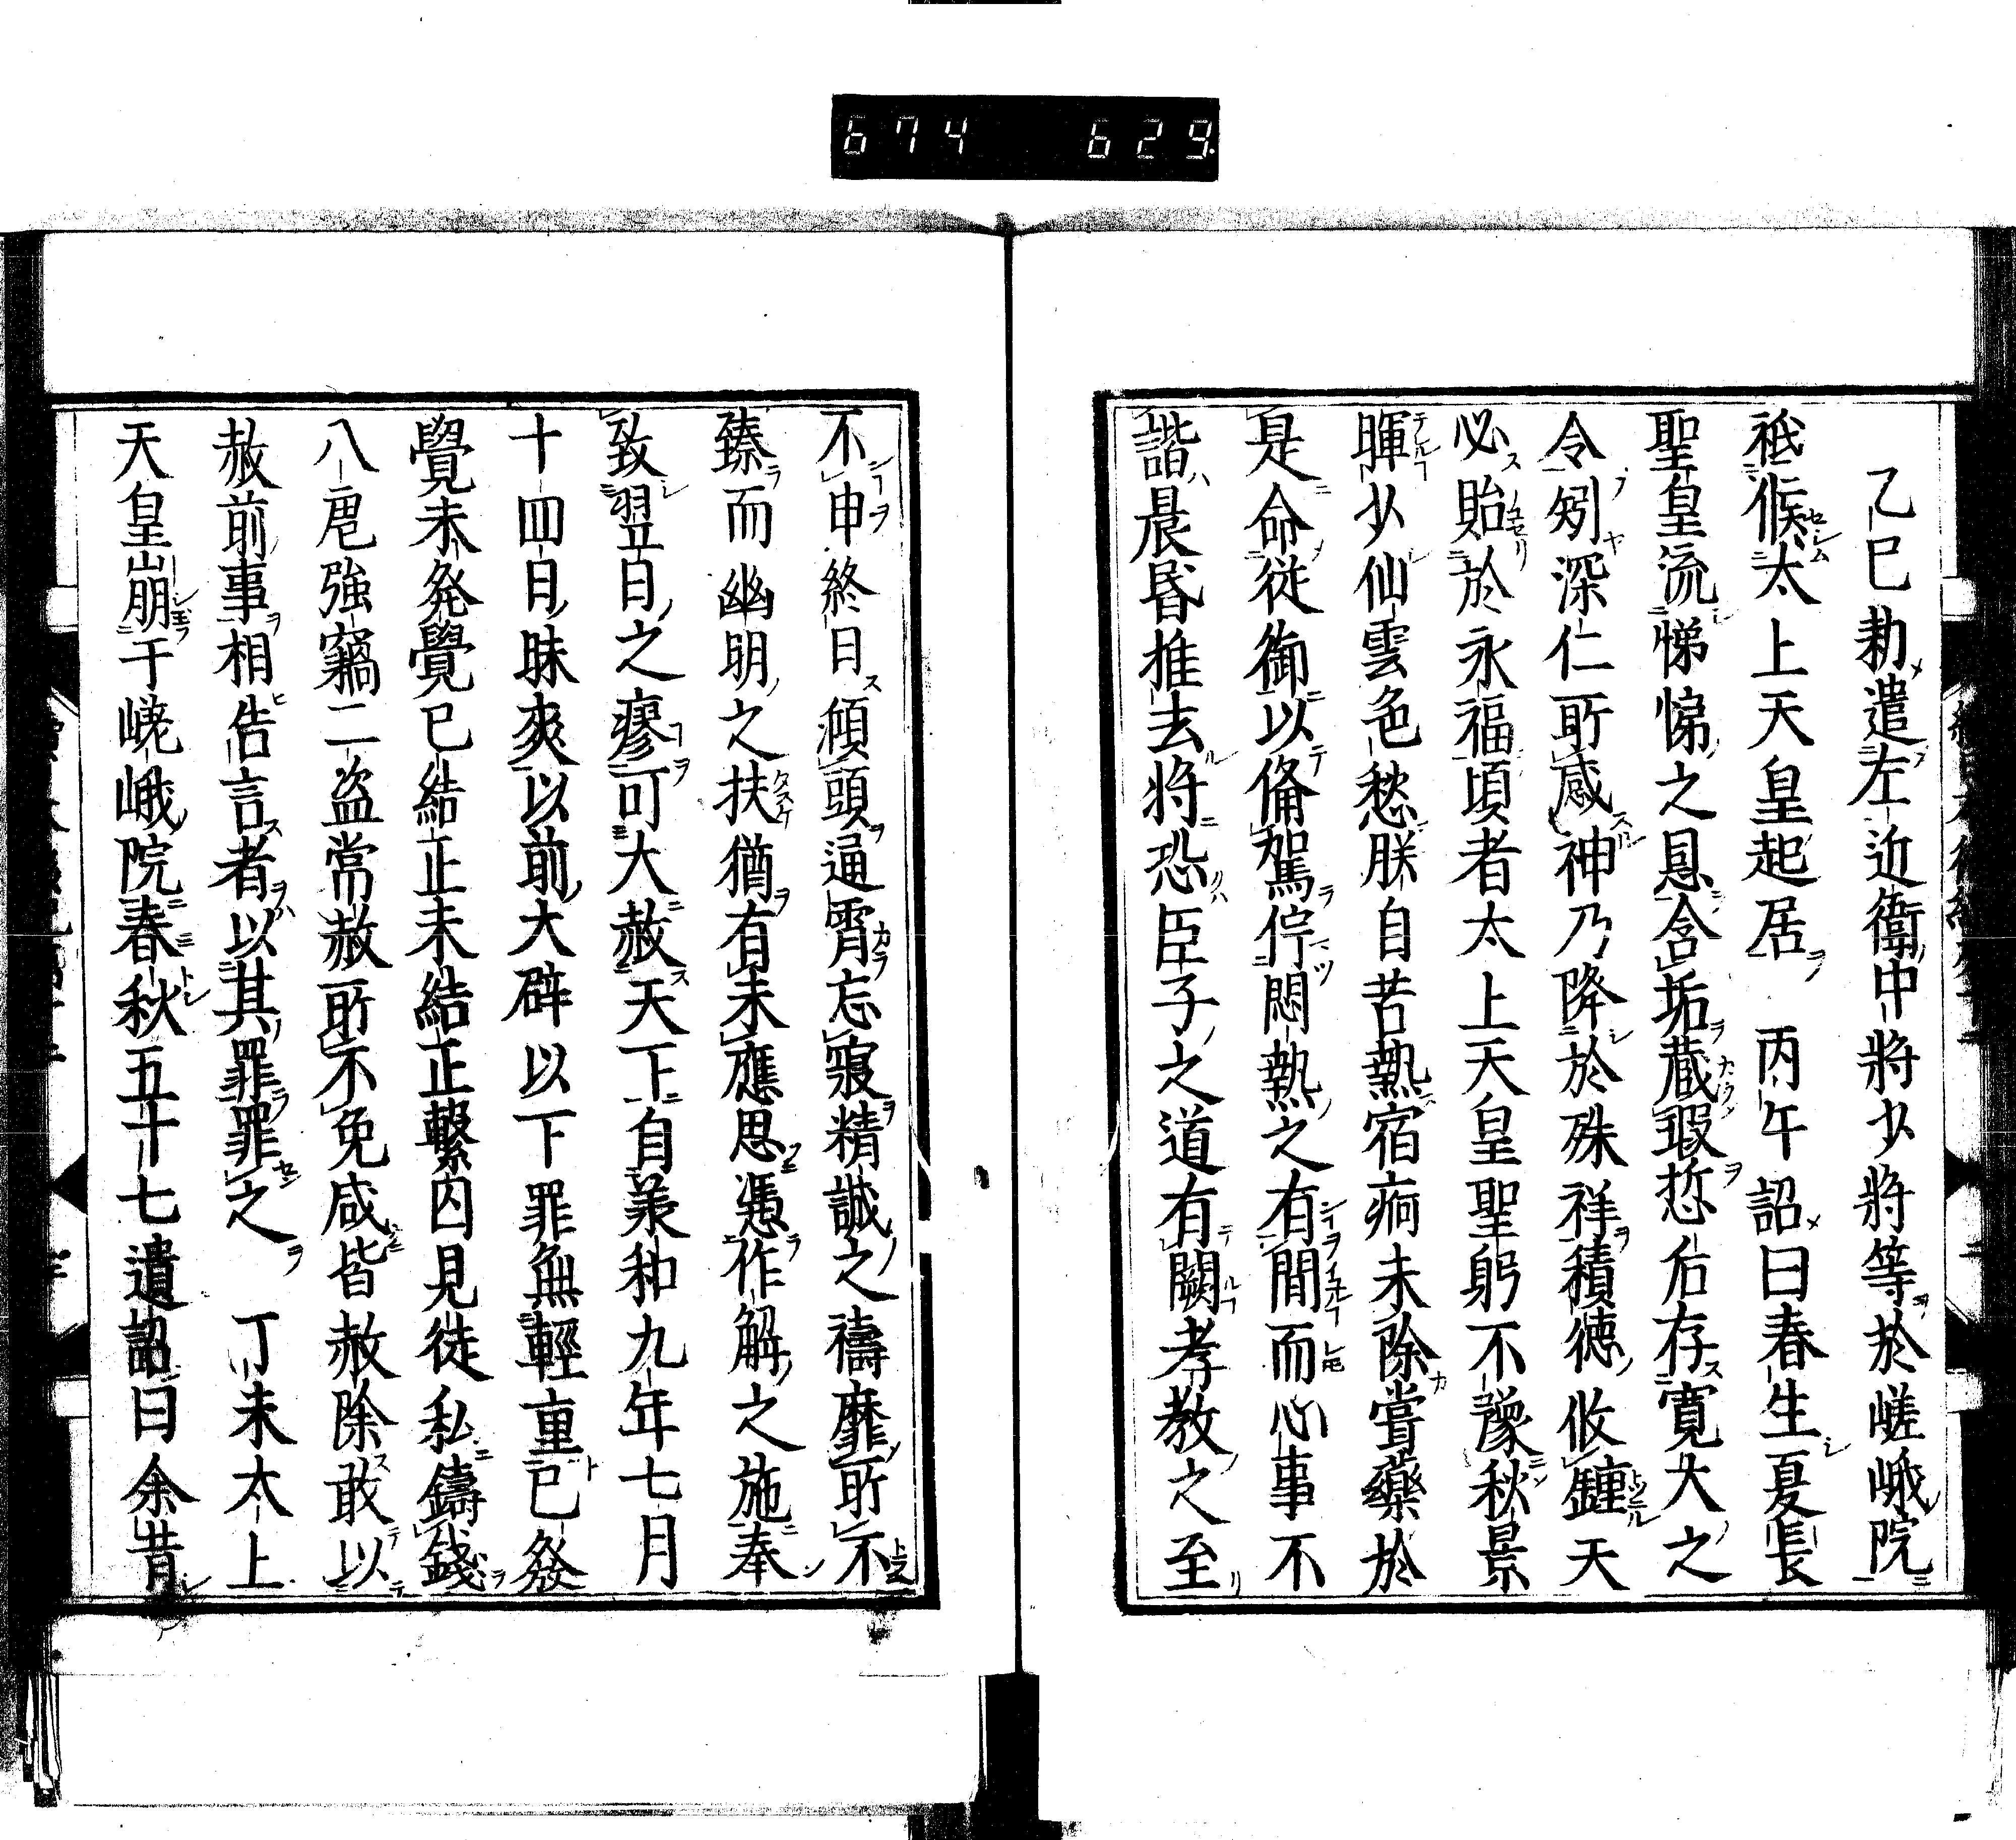 674 629
乙巳勅遣左近衛中將少將等於嵯峨院
祗候太上天皇起居 丙午詔曰春生夏長
聖皇流悌悌之恩含垢蔵瑕悊后存寛大之
令矧深仁所感神乃降於殊祥積徳攸鍾天
必貽於永福頃者太上天皇聖躬不豫秋景
暉少仙雲色愁朕自苦熱宿痾未除嘗藥於
是命從御以脩駕佇悶熱之有間而心事不
諧晨昏推去將恐臣子之道有闕孝教之至
不申終日傾頭通霄忘寢精誠之禱靡所不
臻而幽明之扶猶有未應思憑作解之施奉
致翌日之瘳可大赦天下自美和九年七月
十四日昧爽以前大辟以下罪無輕重已發
覺未発覺已結正未結正繋囚見徒私鑄錢
八虐強竊二盗常赦所不免咸皆赦除敢以
赦前事相告言者以其罪罪之 丁未太上
天皇崩于嵯峨院春秋五十七遺詔曰余昔